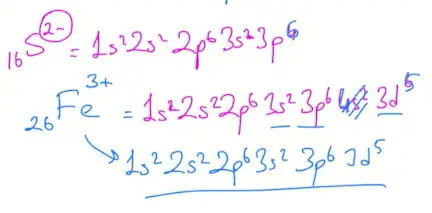 ₁₆S²⁻ = 1s² 2s² 2p⁶ 3s² 3p⁶
₂₆Fe³⁺ = 1s² 2s² 2p⁶ 3s² 3p⁶ 3d⁵
1s² 2s² 2p⁶ 3s² 3p⁶ 3d⁵